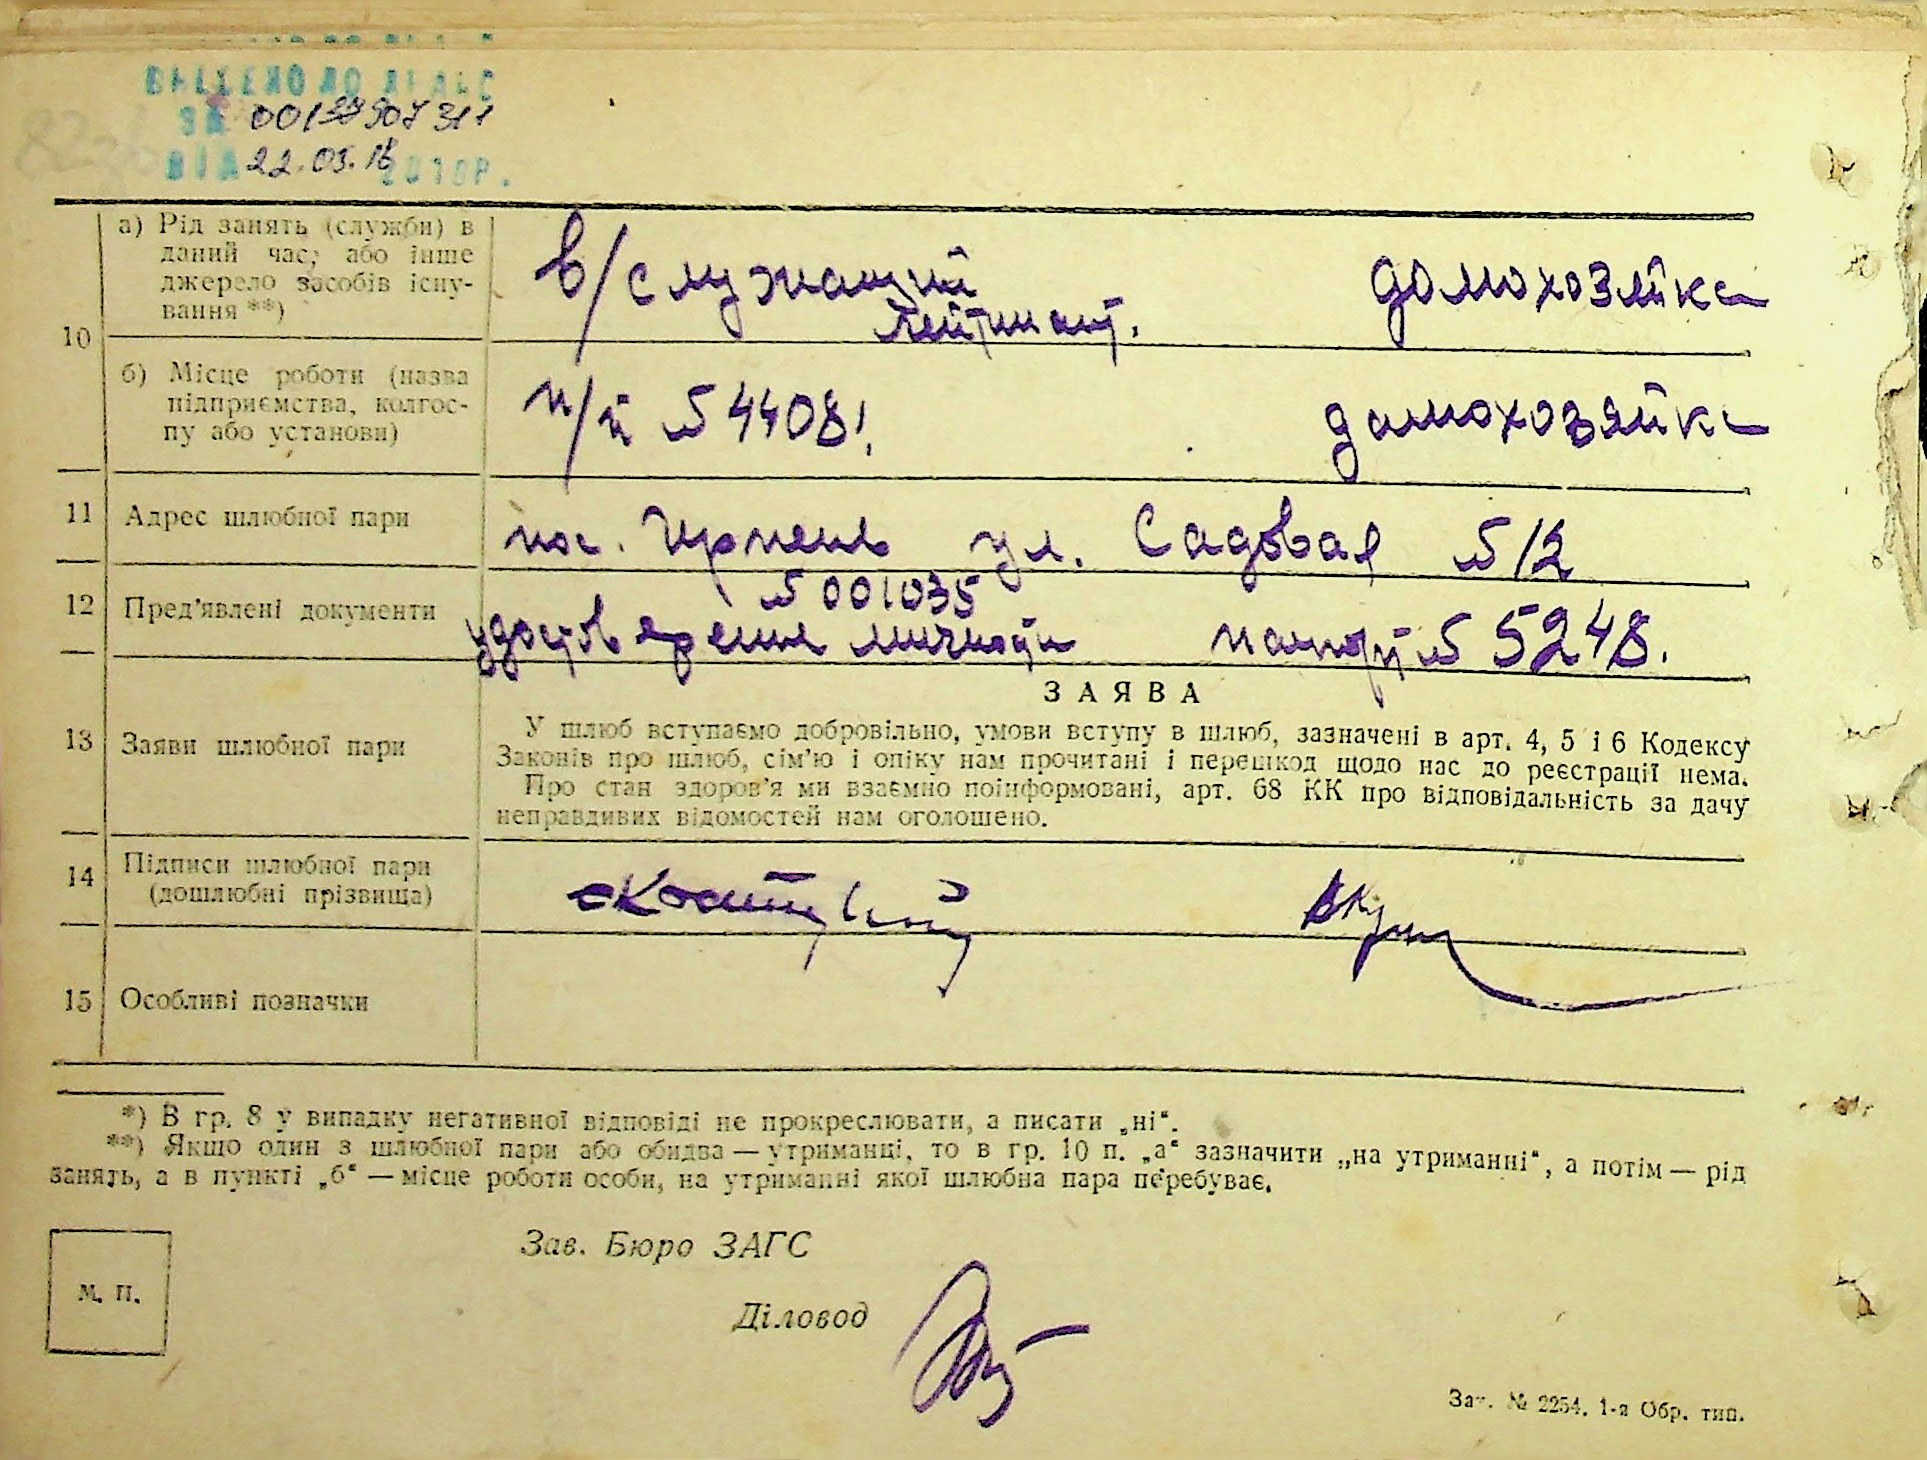 ВНЕСЕНО ДО ДРАЦС
ЗА 00132907311
ВІД 22.03.16 201 Р.
10
а) Рід занять (служби) в
даний час, або інше
джерело засобів існу-
вання **)
в/служащий
лейтинант.
домохозяйка
б) Місце роботи (назва
підприємства, колгос-
пу або установи)
п/я № 44081.
домохозяйка
11 Адрес шлюбної пари
пос. Ирпень ул. Садовая № 12
12 Пред'явлені документи
№ 001035
удостоверение личности паспорт № 5248.
ЗАЯВА
13 Заяви шлюбної пари
У шлюб вступаємо добровільно, умови вступу в шлюб, зазначені в арт. 4, 5 і 6 Кодексу
Законів про шлюб, сім'ю і опіку нам прочитані і перешкод щодо нас до реєстрації нема.
Про стан здоров'я ми взаємно поінформовані, арт. 68 КК про відповідальність за дачу
неправдивих відомостей нам оголошено.
14 Підписи шлюбної пари
(дошлюбні прізвища)
15 Особливі позначки
*) В гр. 8 у випадку негативної відповіді не прокреслювати, а писати „ні“.
**) Якщо один з шлюбної пари або обидва — утриманці, то в гр. 10 п. „а“ зазначити „на утриманні“, а потім — рід
занять, а в пункті „б“ — місце роботи особи, на утриманні якої шлюбна пара перебуває.
Зав. Бюро ЗАГС
М. П.
Діловод
Зат. № 2254. 1-а Обр. тип.